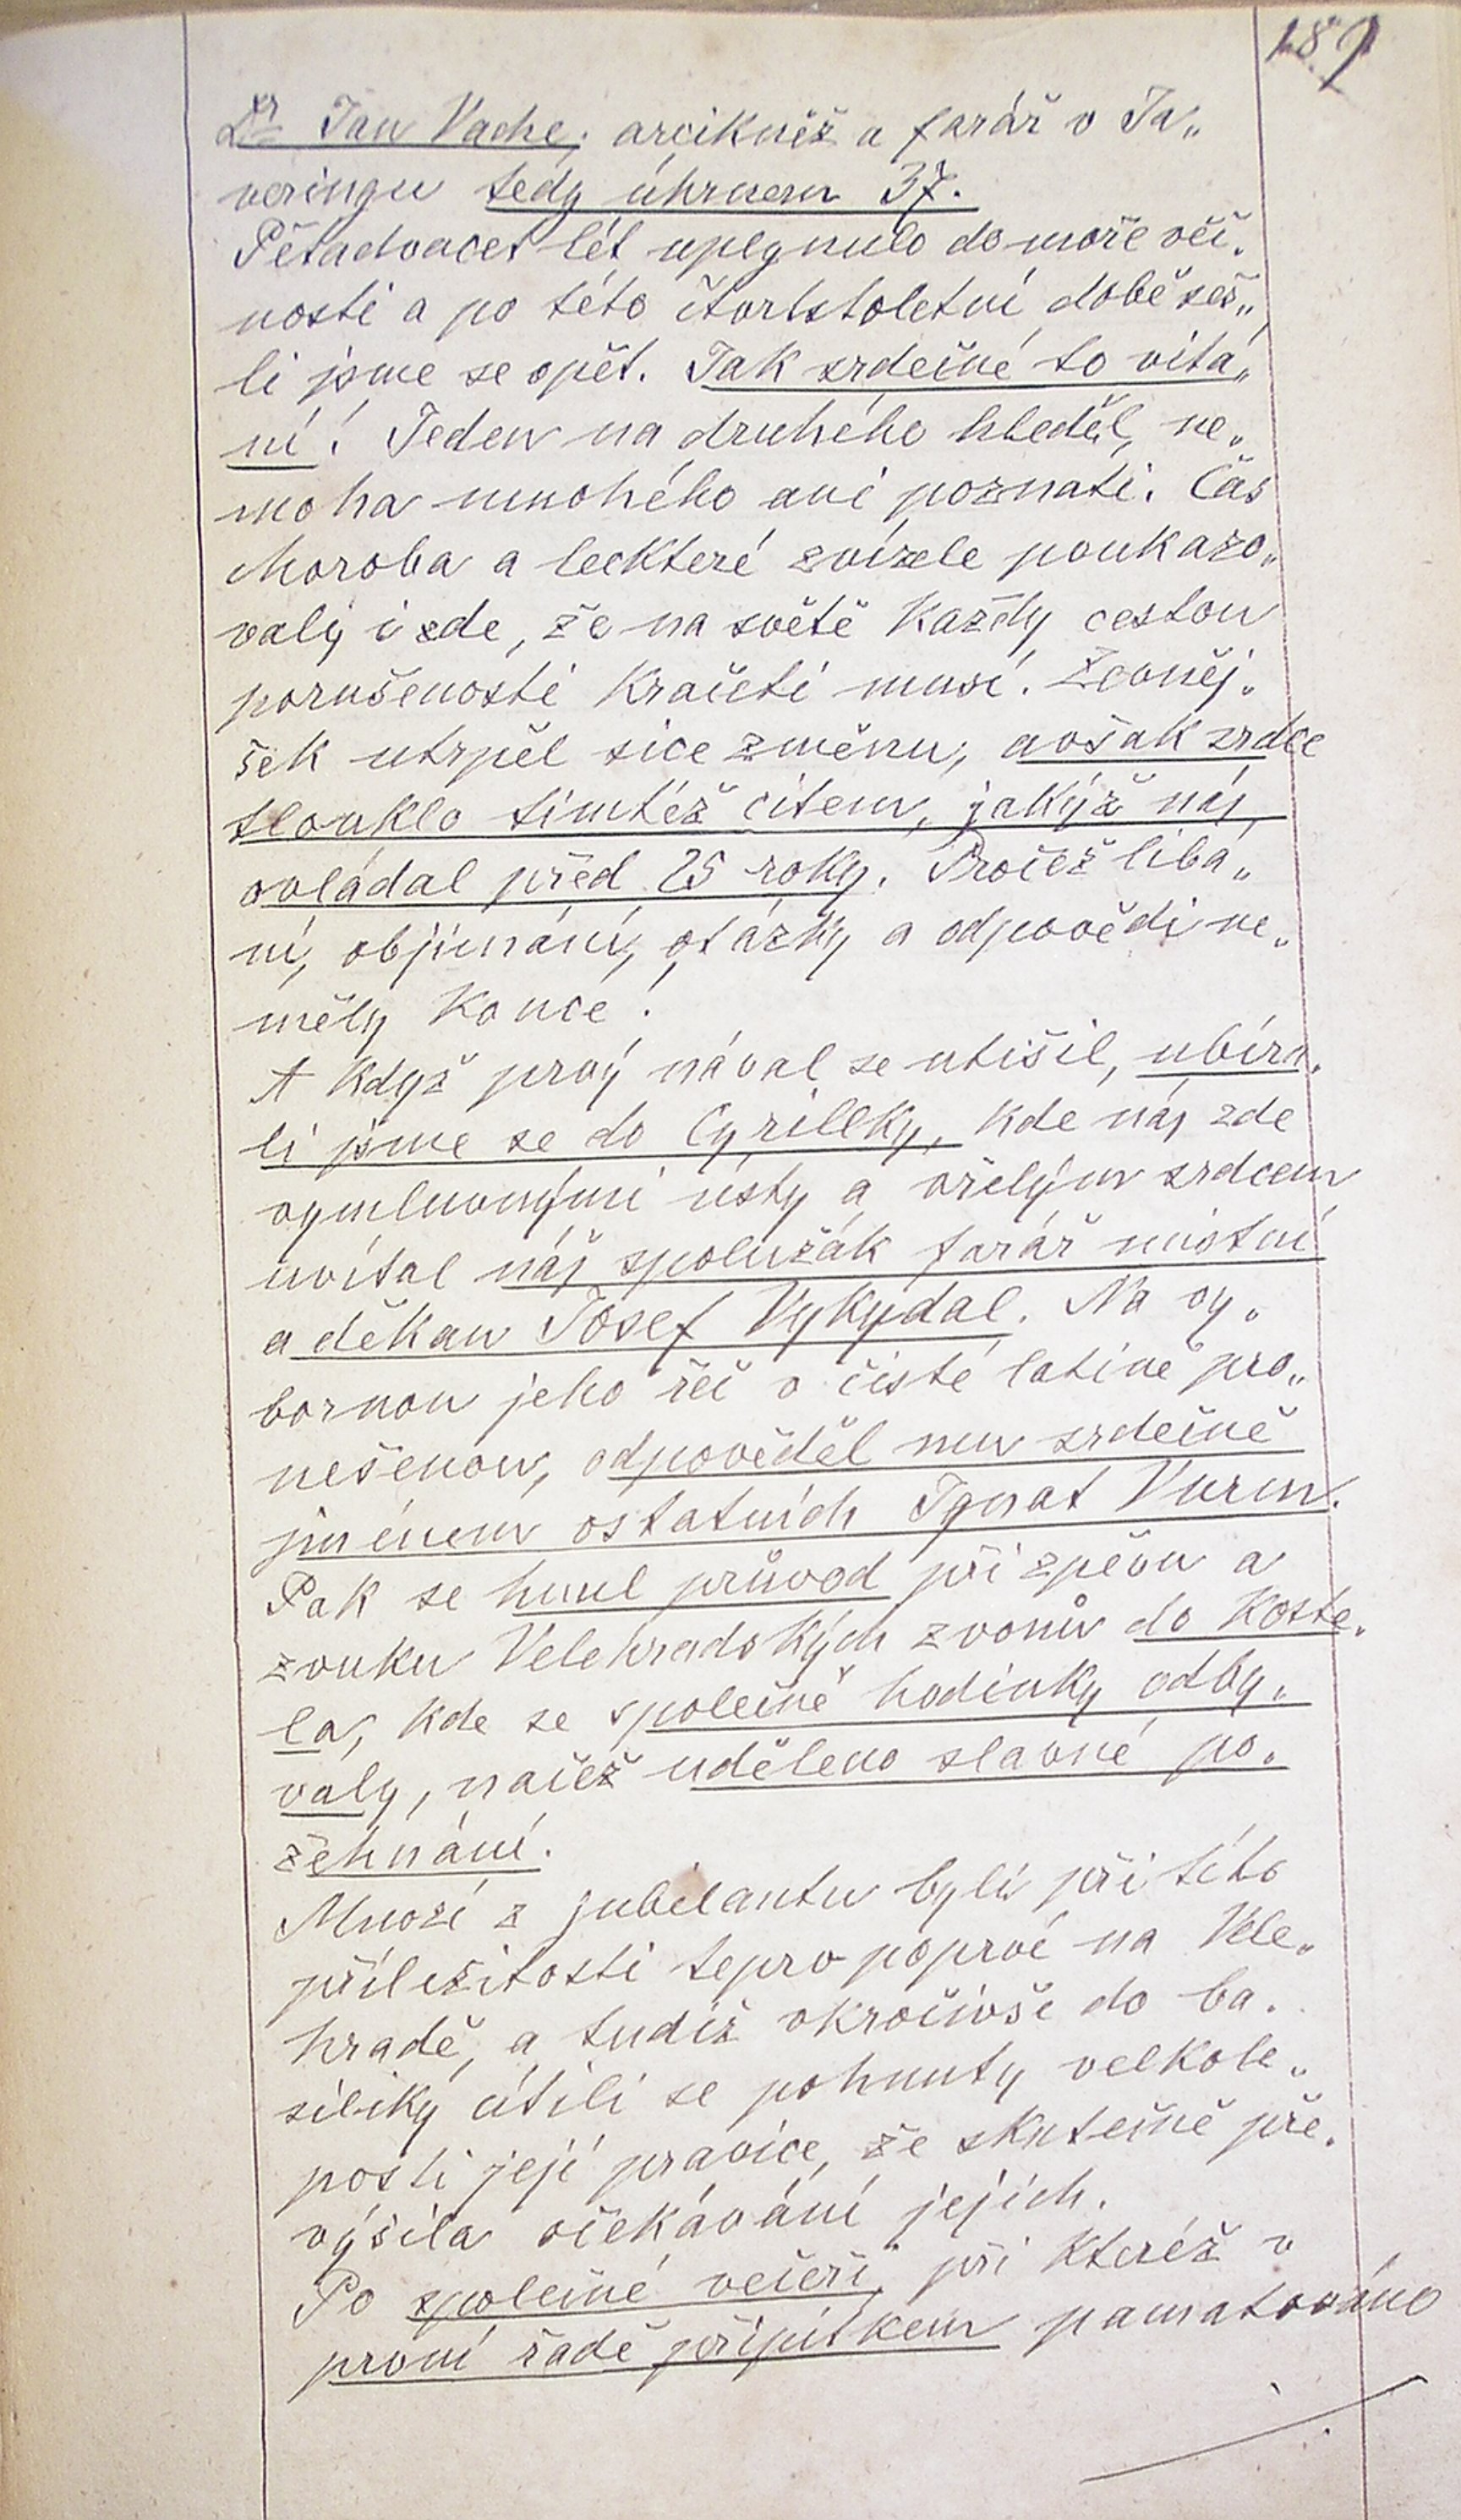 189
Dr Jan Vache, arcikněz a farář v Ta„
veringu tedy úhrnem 37.
Pětadvacet lét uplynulo do moře věč„
nosti a po této čtvrtstoletní době seš„
li jsme se opět. Jak srdečné to vítá„
ní! Jeden na druhého hleděl, ne„
moha mnohého ani poznati. Čas
choroba a leckteré svízele poukazo„
valy i zde, že na světě každý cestou
porušenosti kráčeti musí. Zevněj„
šek utrpěl sice změnu, avšak srdce
tlouklo tímtéž citem, jakýž nás
ovládal před 25 roky. Pročež líbá„
ní, objímání, otázky a odpovědi ne„
měly konce!
A když prvý nával se utišil, ubíra„
li jsme se do Cyrillky, kde nás zde
výmluvnými ústy a vřelým srdcem
uvítal náš spolužák farář místní
a děkan Josef Vykydal. Na vý„
bornou jeho řeč v čisté latině pro„
nešenou, odpověděl mu srdečně
jménem ostatních Ignat Wurm.
Pak se hnul průvod při zpěvu a
zvuku Velehradských zvonův do koste„
la, kde se společné hodinky odbý„
valy, načež uděleno slavné po„
žehnání.
Mnozí z jubilantu byli při této
příležitosti teprv poprvé na Vele„
hradě, a tudíž vkročivše do ba„
siliky cítili se pohnuty velkole„
posti její pravíce, že skutečně pře„
výšila očekávání jejich.
Po společné večeři, při kteréž v
první řadě přípitkem pamatováno